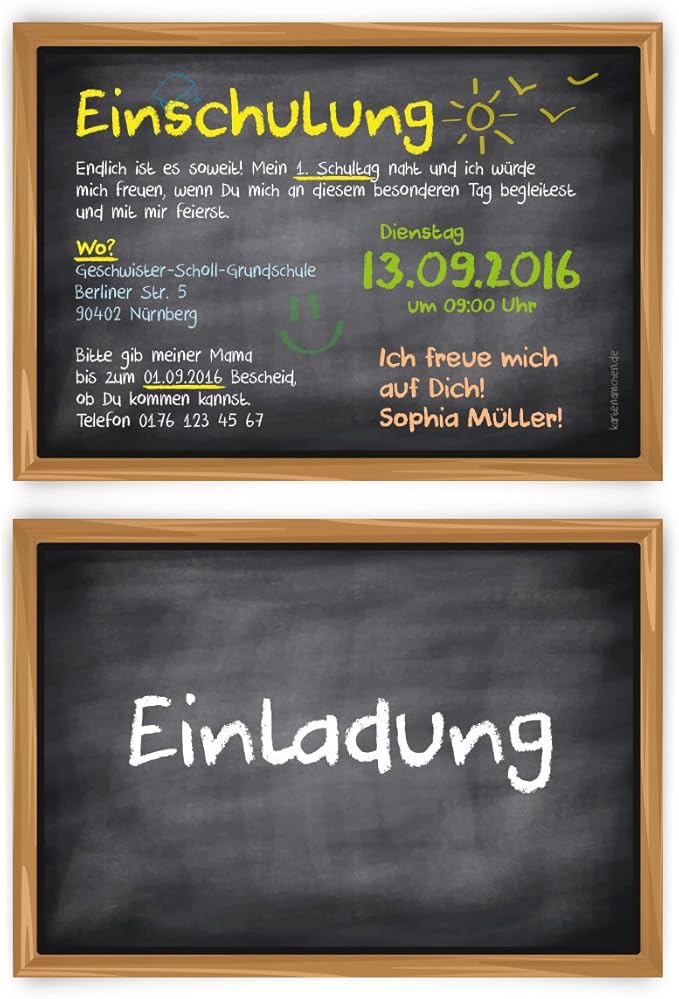 Einschulung
Endlich ist es soweit! Mein 1. Schultag naht und ich würde
mich freuen, wenn Du mich an diesem besonderen Tag begleitest
und mit mir feierst.
Wo?
Geschwister-Scholl-Grundschule
Berliner Str. 5
90402 Nürnberg
Dienstag
13.09.2016
um 09:00 Uhr
Bitte gib meiner Mama
bis zum 01.09.2016 Bescheid,
ob Du kommen kannst.
Telefon 0176 123 45 67
Ich freue mich
auf Dich!
Sophia Müller!
kartenmachen.de
Einladung